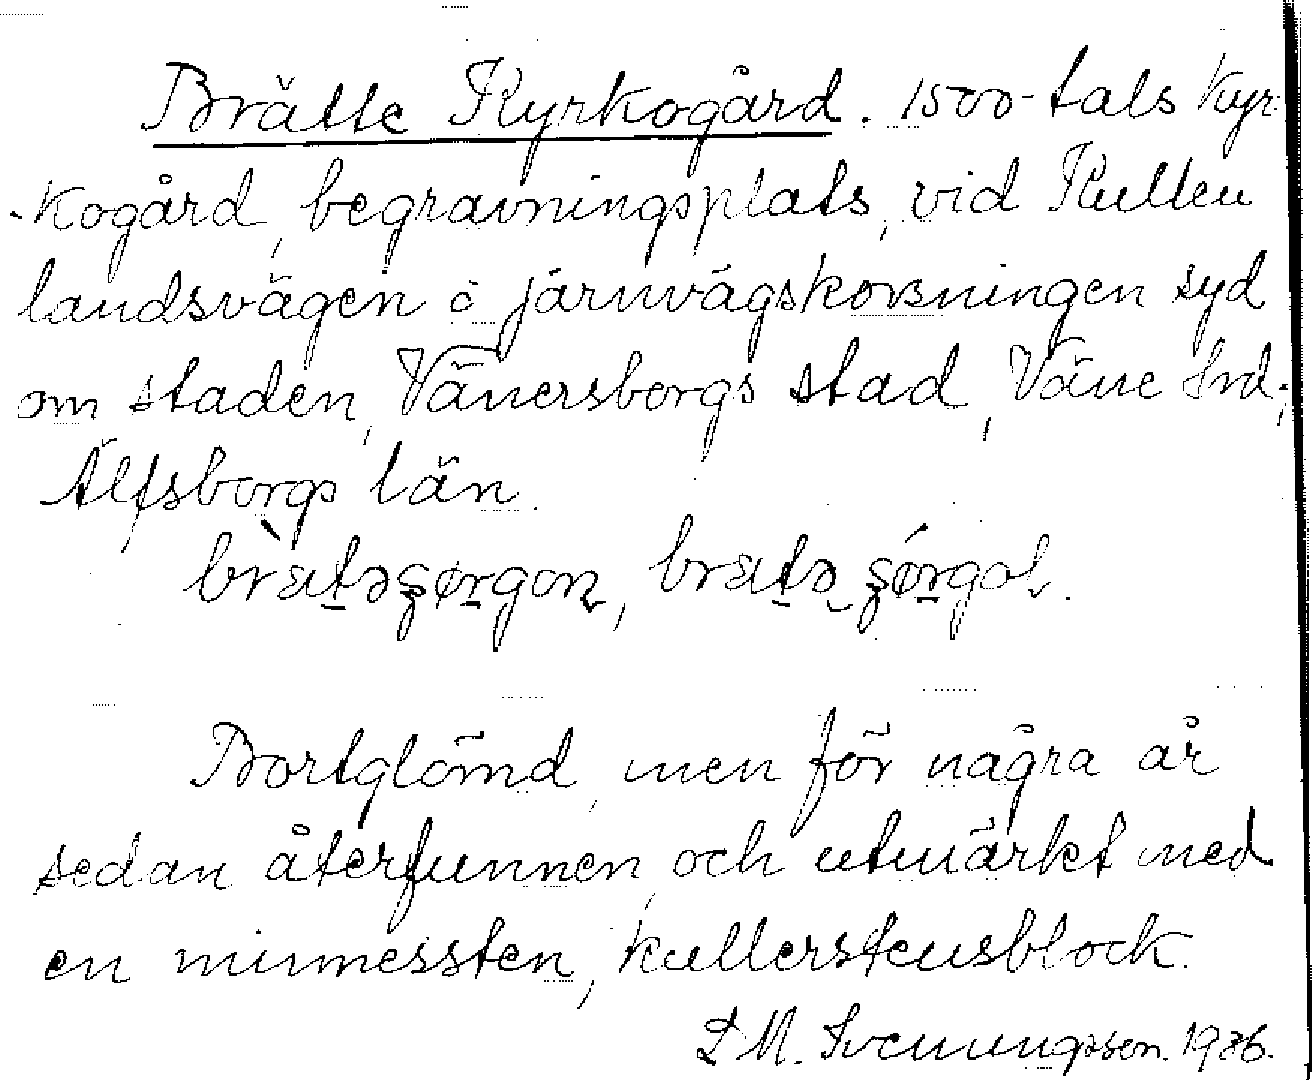 Brätte Kyrkogård. 1500-tals kyr-
-kogård, begravningsplats, vid Kullen
landsvägen o järnvägskorsningen syd
om staden, Vänersborgs stad, Väne hrd;
Älfsborgs län.
Bortglömd, men för några år
sedan återfunnen, och utmärkt med
en minnessten, kullerstensblock.
L M. Svenungsson. 1936.